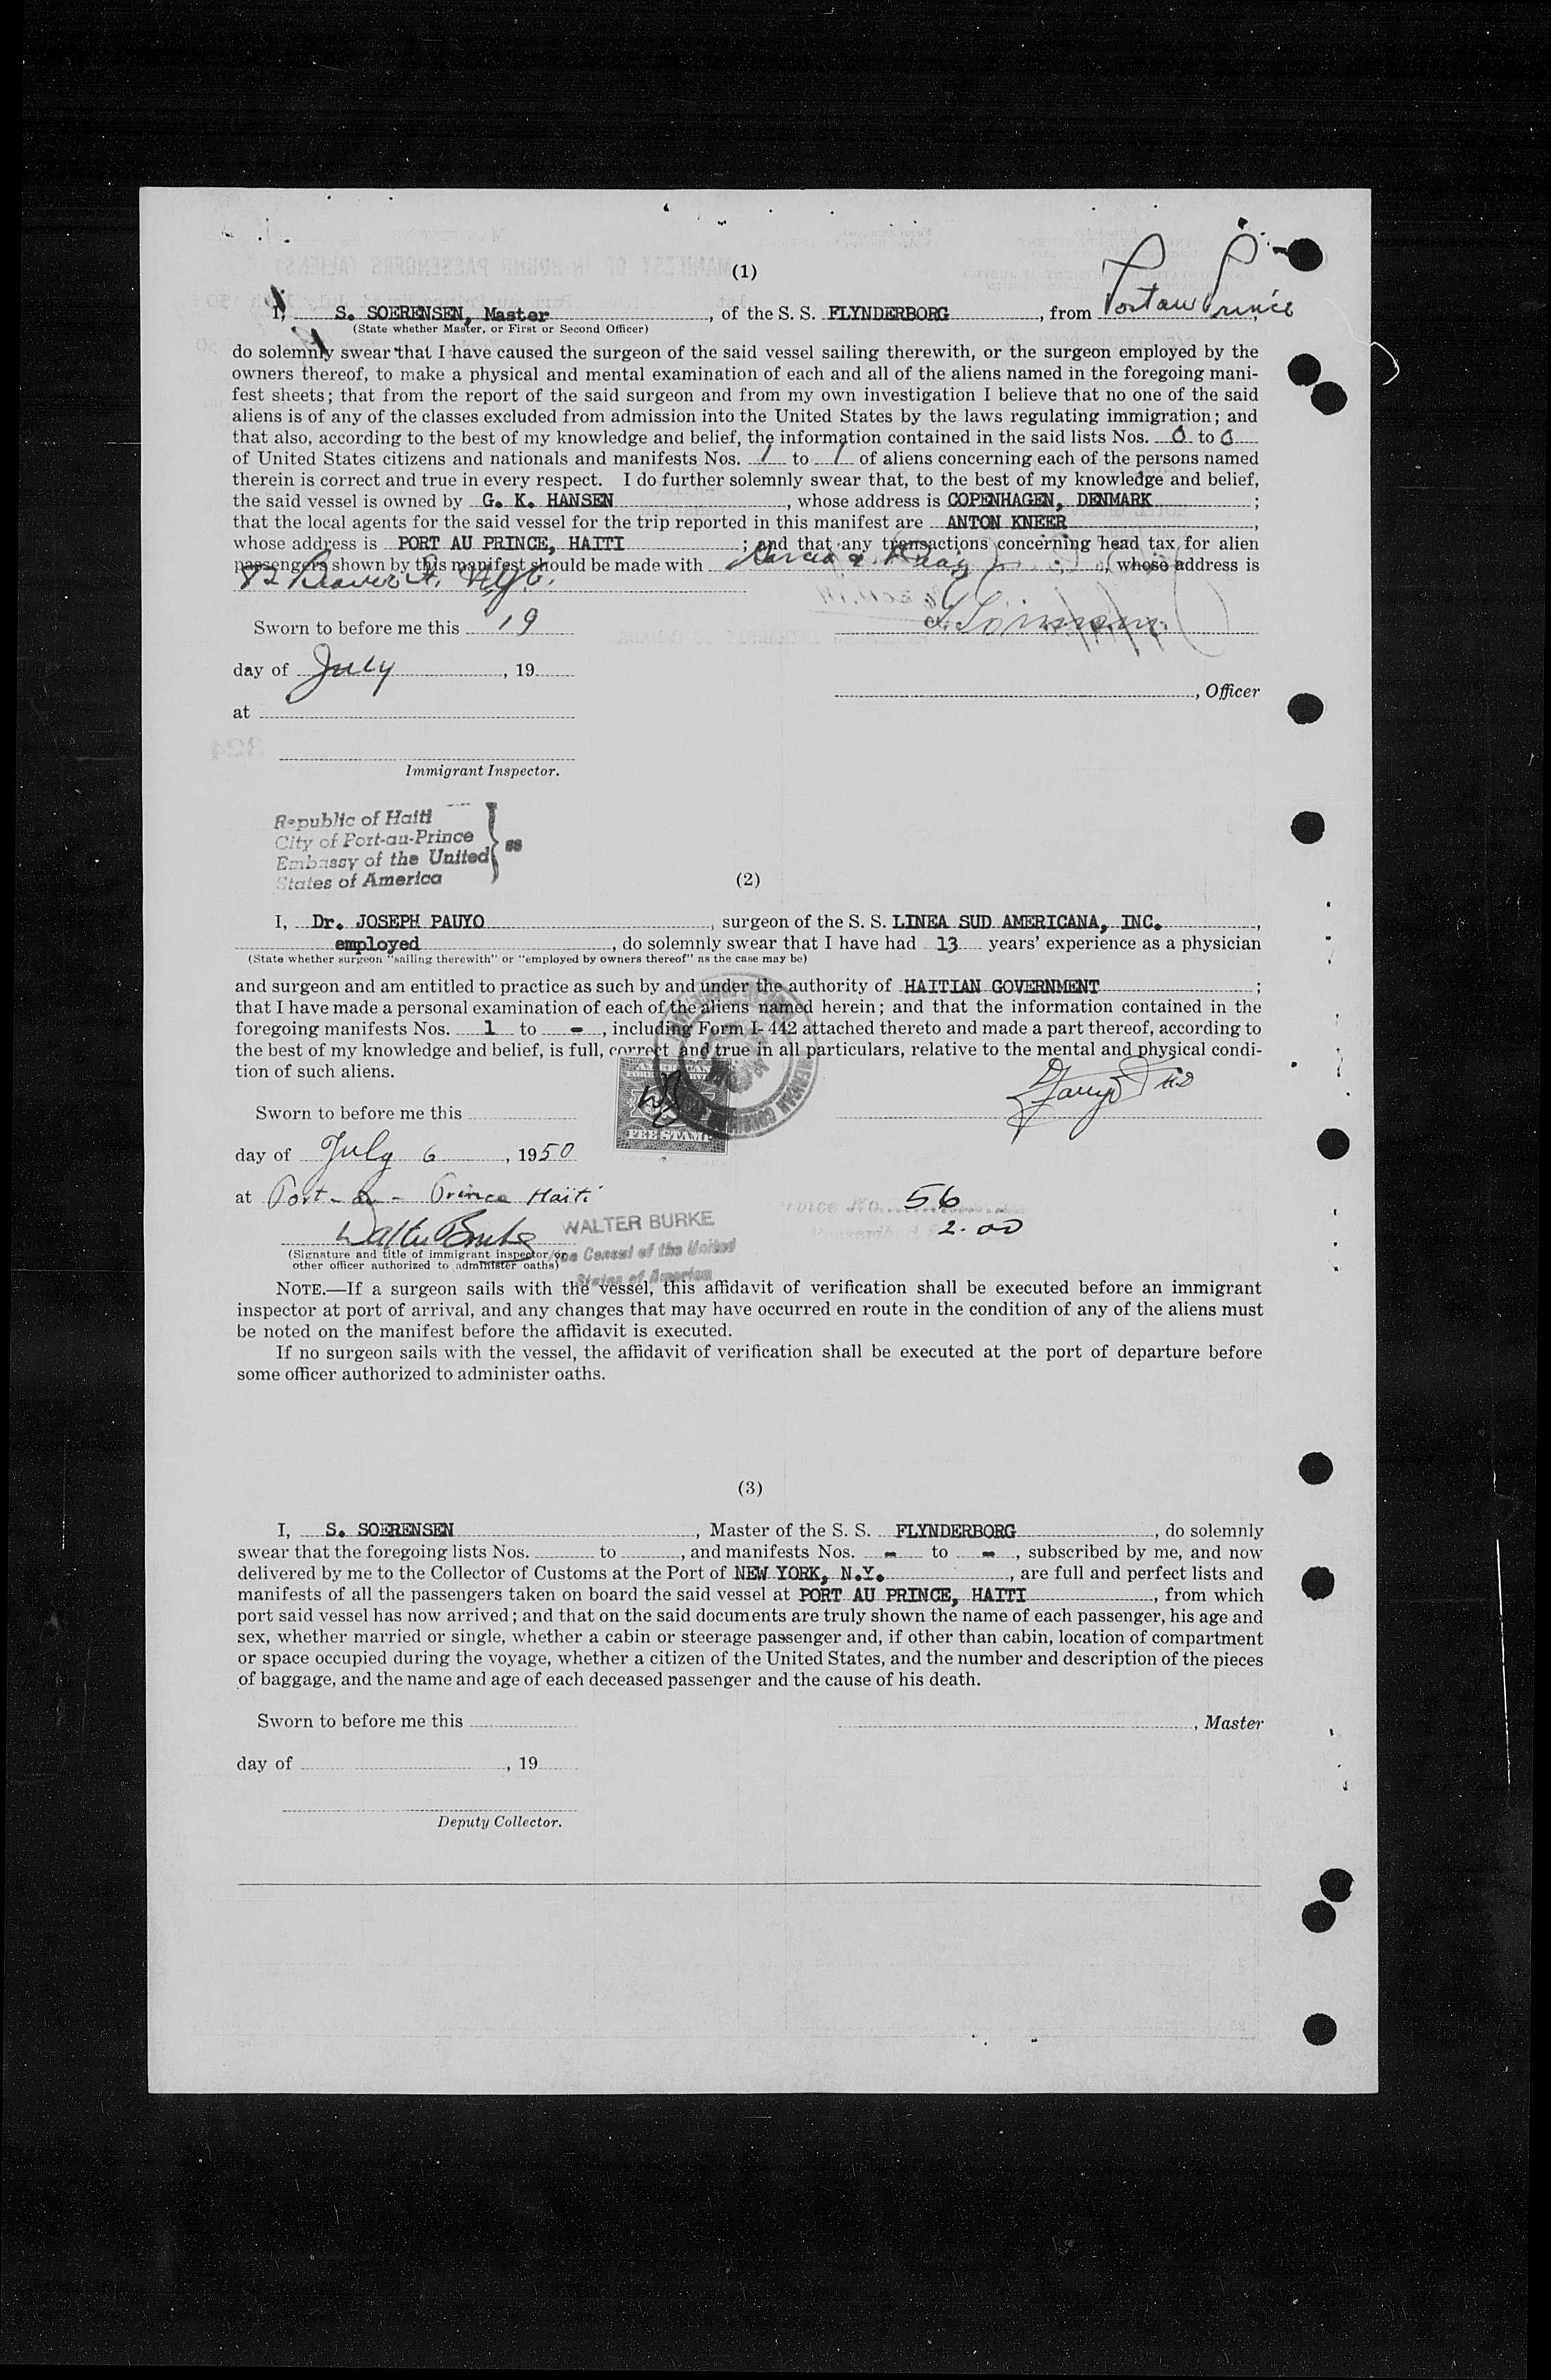 (1)
I, S. SOERENSEN, Master, of the S. S. FLYNDERBORG, from Port au Prince
(State whether Master, or First or Second Officer)
do solemnly swear that I have caused the surgeon of the said vessel sailing therewith, or the surgeon employed by the
owners thereof, to make a physical and mental examination of each and all of the aliens named in the foregoing mani-
fest sheets; that from the report of the said surgeon and from my own investigation I believe that no one of the said
aliens is of any of the classes excluded from admission into the United States by the laws regulating immigration; and
that also, according to the best of my knowledge and belief, the information contained in the said lists Nos. 0 to 0
of United States citizens and nationals and manifests Nos. 1 to 1 of aliens concerning each of the persons named
therein is correct and true in every respect. I do further solemnly swear that, to the best of my knowledge and belief,
the said vessel is owned by G. K. HANSEN, whose address is COPENHAGEN, DENMARK;
that the local agents for the said vessel for the trip reported in this manifest are ANTON KNEER,
whose address is PORT AU PRINCE, HAITI; and that any transactions concerning head tax for alien
passengers shown by this manifest should be made with Garcia & Diaz, whose address is
82 Beaver St. NYC.
Sworn to before me this 19
day of July, 19
, Officer
at
Immigrant Inspector.
Republic of Haiti
City of Port-au-Prince
Embassy of the United
States of America
} ss
(2)
I, Dr. JOSEPH PAUYO, surgeon of the S. S. LINEA SUD AMERICANA, INC.,
employed, do solemnly swear that I have had 13 years' experience as a physician
(State whether surgeon "sailing therewith" or "employed by owners thereof" as the case may be)
and surgeon and am entitled to practice as such by and under the authority of HAITIAN GOVERNMENT;
that I have made a personal examination of each of the aliens named herein; and that the information contained in the
foregoing manifests Nos. 1 to -, including Form I-442 attached thereto and made a part thereof, according to
the best of my knowledge and belief, is full, correct and true in all particulars, relative to the mental and physical condi-
tion of such aliens.
AMERICAN
FEE STAMP
Sworn to before me this
day of July 6, 1950
at Port-au-Prince Haiti
56
2.00
Walter Burke
WALTER BURKE
Vice Consul of the United
States of America
(Signature and title of immigrant inspector or
other officer authorized to administer oaths)
NOTE.—If a surgeon sails with the vessel, this affidavit of verification shall be executed before an immigrant
inspector at port of arrival, and any changes that may have occurred en route in the condition of any of the aliens must
be noted on the manifest before the affidavit is executed.
If no surgeon sails with the vessel, the affidavit of verification shall be executed at the port of departure before
some officer authorized to administer oaths.
(3)
I, S. SOERENSEN, Master of the S. S. FLYNDERBORG, do solemnly
swear that the foregoing lists Nos. to , and manifests Nos. - to -, subscribed by me, and now
delivered by me to the Collector of Customs at the Port of NEW YORK, N.Y., are full and perfect lists and
manifests of all the passengers taken on board the said vessel at PORT AU PRINCE, HAITI, from which
port said vessel has now arrived; and that on the said documents are truly shown the name of each passenger, his age and
sex, whether married or single, whether a cabin or steerage passenger and, if other than cabin, location of compartment
or space occupied during the voyage, whether a citizen of the United States, and the number and description of the pieces
of baggage, and the name and age of each deceased passenger and the cause of his death.
Sworn to before me this
, Master
day of , 19
Deputy Collector.